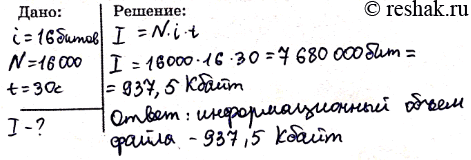 © reshak.ru
Дано:
i = 16 битов
N = 16 000
t = 30с
I - ?
Решение:
I = N·i·t
I = 16000·16·30 = 7 680 000 бит =
= 937,5 Кбайт
Ответ: информационный объем
файла - 937,5 Кбайт